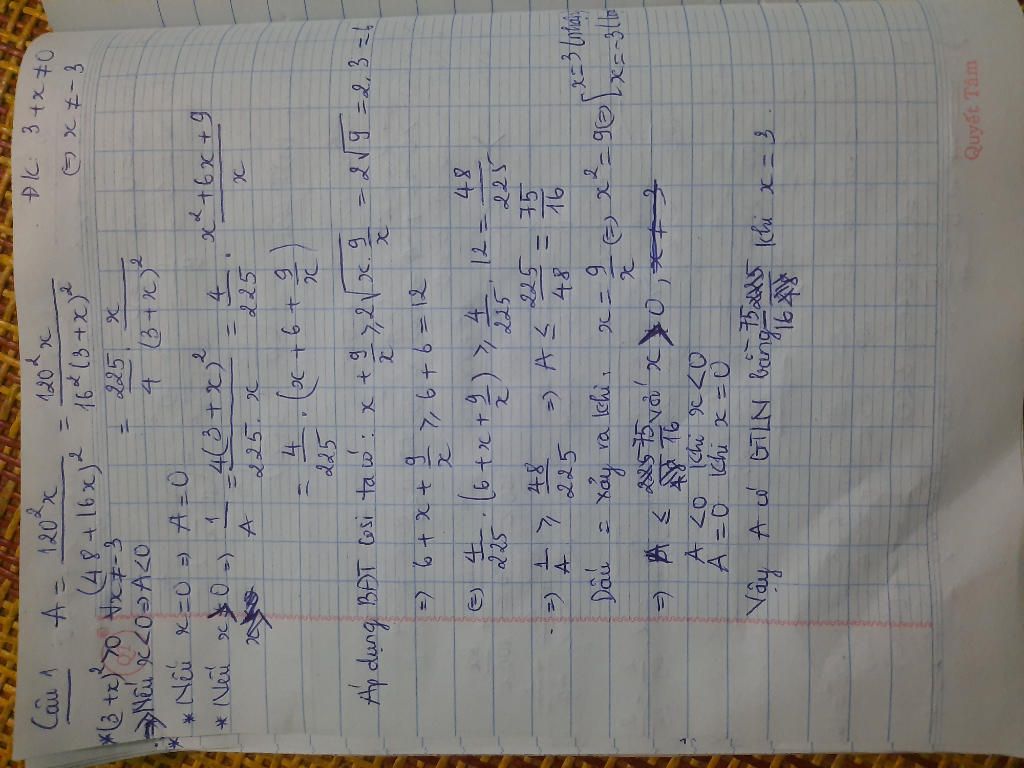 Câu 1 : A = 120²x / (48 + 16x)² = 120²x / 16²(3 + x)² ĐK: 3 + x ≠ 0
* (3 + x)² > 0 ∀x ≠ -3 = 225/4 · x/(3 + x)² ⇔ x ≠ -3
⇒ Nếu x < 0 ⇒ A < 0
* Nếu x = 0 ⇒ A = 0
* Nếu x > 0 ⇒ 1/A = 4(3 + x)² / 225.x = 4/225 · (x² + 6x + 9)/x
= 4/225 · (x + 6 + 9/x)
Áp dụng BĐT Cosi ta có : x + 9/x ≥ 2√(x · 9/x) = 2√9 = 2.3 = 6
⇒ 6 + x + 9/x ≥ 6 + 6 = 12
⇔ 4/225 · (6 + x + 9/x) ≥ 4/225 · 12 = 48/225
⇒ 1/A ≥ 48/225 ⇒ A ≤ 225/48 = 75/16
Dấu = xảy ra khi: x = 9/x ⇔ x² = 9 ⇔ [ x = 3 x = -3
⇒ A ≤ 75/16 với x > 0,
A < 0 khi x < 0
A = 0 khi x = 0
Vậy A có GTLN bằng 75/16 khi x = 3.
Quyết Tâm